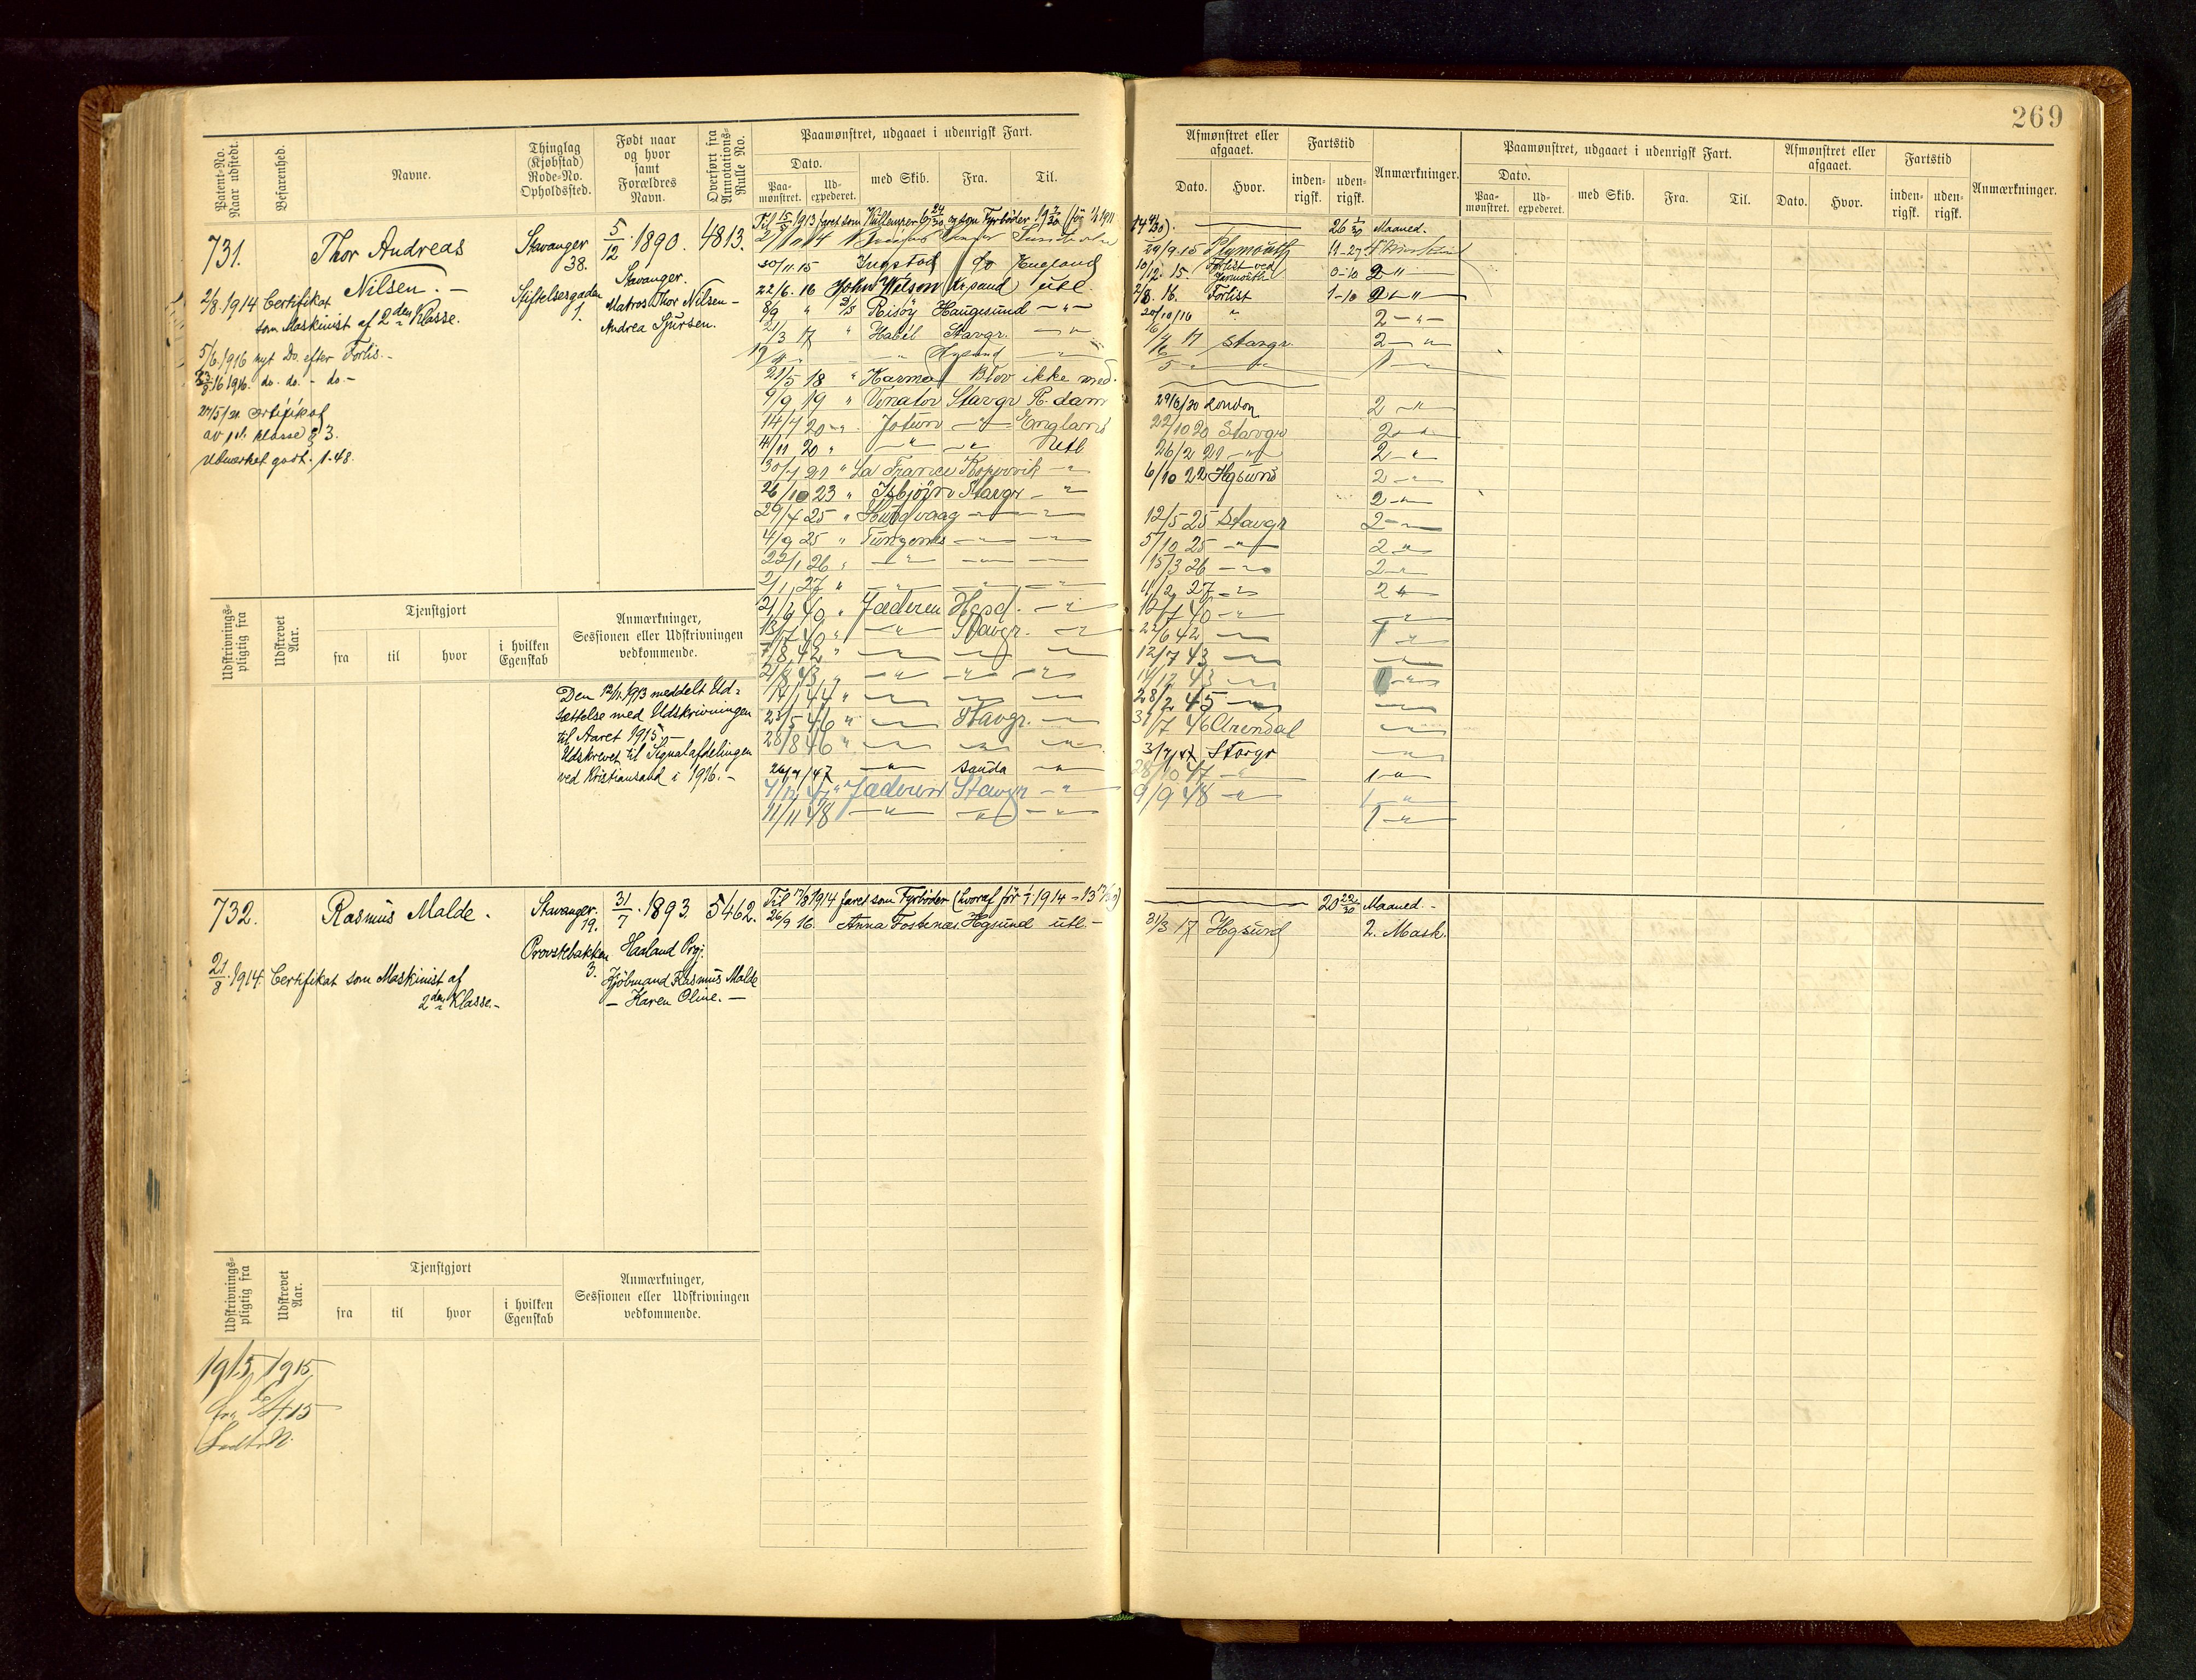 269
Patent-No. Naar udstedt.
Befarenhed.
Navne.
Thinglag (Kjøbstad) Rode-No. Opholdssted.
Født naar og hvor samt Forældres Navn.
Overført fra Annotations-Rulle No.
Paamønstret, udgaaet i udenrigsk Fart.
Dato.
Paa-mønstret.
Ud-expederet.
med Skib.
Fra.
Til.
Afmønstret eller afgaaet.
Dato.
Hvor.
Fartstid
inden-rigsk.
uden-rigsk.
Anmærkninger.
Paamønstret, udgaaet i udenrigsk Fart.
Dato.
Paa-mønstret.
Ud-expederet.
med Skib.
Fra.
Til.
Afmønstret eller afgaaet.
Dato.
Hvor.
Fartstid
inden-rigsk.
uden-rigsk.
Anmærkninger.
731.
Thor Andreas
Nilsen. -
Stavanger
38.
Stiftelsesgaden
1
5/12 1890.
Stavanger.
Matros Thor Nilsen -
Andrea Sjursen.
4813.
2/8 1914 Certifikat
som Maskinist af 2den Klasse.
5/6 1916 nyt Do. efter Forlis. -
1916. do. do. - do -
27/5/21 Certifikat
av 1st. klasse § 3.
Utmerket godt. 1.48.
26 Maaned.
29/9.15 Plymouth
30/11 15 Ingstad England
10/12. 15 Forlist ved Yarmouth 0-10 2 "
22/6. 16 John Wilson Kr.sand utl.
2/8. 16. Forlist 1-10 2 "
8/9 " Risöy Haugesund - " -
20/10/16 " 2 - " -
21/3 17 " Habil Stavgr. - " -
17 Stavgr. 2 - "
21/5 18 " Karma Blev ikke med.
9/9 19 " Venator Stavgr R.dam
29/6/20 London 2 - "
14/7 20 - " Jotun - " - England
22/10 20 Stavgr 2 - " -
14/11 20 " - " - - " - Utl
26/2 21 - " - 2 - " -
21 " La France Kopervik - "
6/10 22 Hgsund 2 - " -
26/10 23 " Isbjörn Stavgr - "
2 - " -
29/4 25 " Hundvaag - " - - " -
12/5 25 Stavgr 2 - " -
4/9 25 " Tungenes - " - - " -
5/10 25 - " - 2 - " -
22/1 26 " - " - - " - - " -
15/3 26 - " - 2 - " -
2/1 27 " - " - - " - - " -
11/2 27 - " - 2 - " -
40 " Jæderen - " -
12/7 40 - " - - " -
13/7 40 " - " - Stavgr. - " -
22/6 42 - " - 1 - " -
7/8 42 " - " - - " - - " -
12/7 43 - " - - " -
2/8 43 " - " - - " - - " -
14/12 43 - " - 1 - " -
17/1 44 " - " - - " - - " -
28/2 45 - " - - " -
25/5 46 " - " - Stavgr. - " -
31/7 46 Arendal - " -
28/8 46 " - " - - " - - " -
3/7/47 Stavgr - " -
26/7/47 - " - Sauda - " -
28/10 47 - " - 1 - " -
4/12 47 " Jæderen Stavgr - " -
9/9 48 - " - 1 - " -
11/11 48 - " - - " - - " -
1 - " -
Udskrivnings-pligtig fra
Udskrevet Aar.
Tjenstgjort
fra
til
hvor
i hvilken Egenskab
Anmærkninger, Sessionen eller Udskrivningen vedkommende.
Den 12/11 1913 meddelt Ud-
sættelse med Udskrivningen
til Aaret 1915. -
Udskrevet til Signalafdelingen
ved Kristiansand i 1916. -
732.
Rasmus Malde.
Stavanger.
19.
Provstebakken
3.
31/7 1893.
Haaland Prgj.
Kjöbmand Rasmus Malde
- Karen Oline. -
5462.
21/8 1914. Certifikat som Maskinist af
2den Klasse. -
Til 17/8 1914 faret som Fyrböder (hvoraf för 1/1 1914 = 13 17/30)
20 22/30 Maaned. -
26/9 16. Anna Fostenæs. Hgsund utl. -
31/3 17 Hgsund 2. Mask.
Udskrivnings-pligtig fra
Udskrevet Aar.
Tjenstgjort
fra
til
hvor
i hvilken Egenskab
Anmærkninger, Sessionen eller Udskrivningen vedkommende.
1915 1915